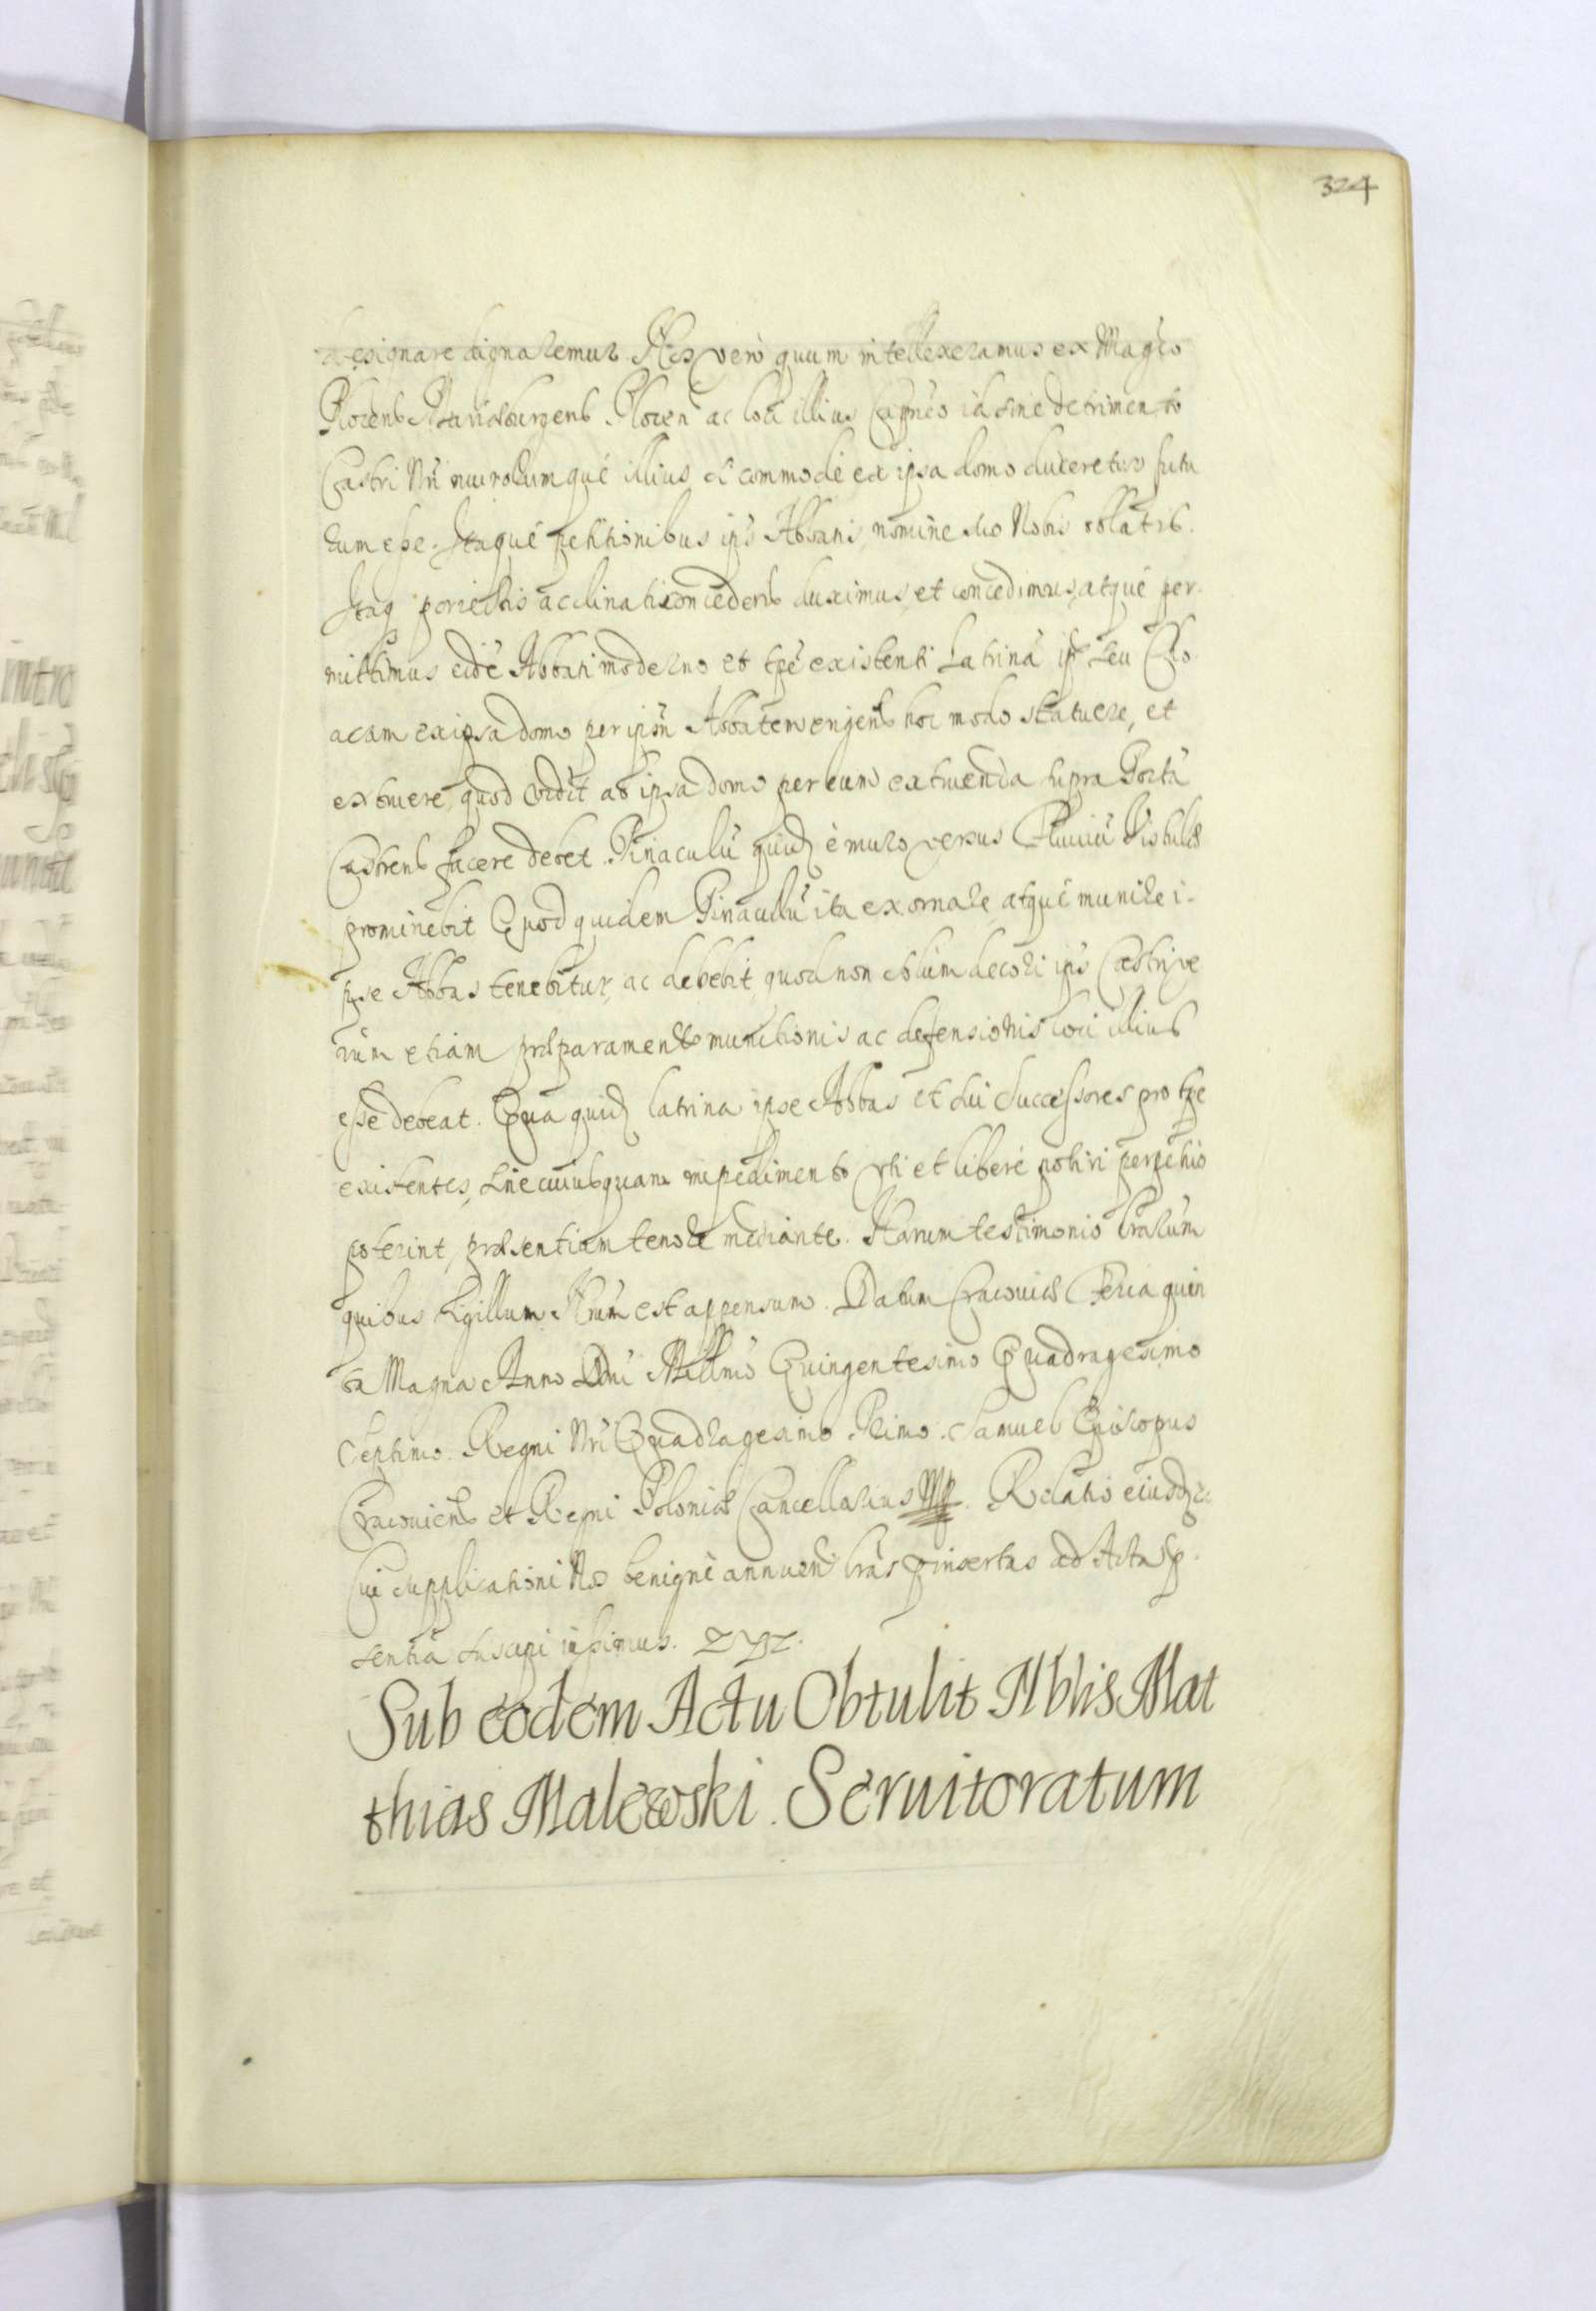 324
designare dignaremur. Nos vero quum intellexeramus ex Magco
Plocens Marieburgens Plocen ac loci illius Capneo id sine detrimento
Castri Nri murorumque illius et commode ex ipsa domo duceretur futu
rum esse. Itaque petitionibus ipsi Abbatis nomine suo Nobis oblatis.
Itaq acclinati concedend duximus, et concedimus, atque per-
mittimus eidē Abbati moderno et tpē existenti Latrinā seu Clo-
acam ex ipsa domo per ipsm Abbatem erigend hoc modo statuere, et
extruere, quod ab ipsa domo per eum extruenda supra Portā
Castrens facere debet. Pinaculū quid è muro versus Fluviū Vistulæ
prominebit Quod quidem Pinaculū ita exornare atque munire i-
pse Abbas tenebitur, ac debebit, quod non solum decori ipsi Castri, ve
rum etiam præparamento munitionis ac defensionis loci illius
esse debeat. Qua quid latrina ipse Abbas et sui Successores pro tpe
existentes, sine cuiusquam impedimento uti et libere potiri perpetuo
poterint, præsentium tenore mediante. Harum testimonio lrarum
quibus sigillum Nrum est appensum. Datum Cracouiæ Feria quin
ta Magna Anno Dni Millmo Quingentesimo Quadragesimo
Septimo. Regni Nri Quadragesimo Primo. Samuel Episcopus
Cracouiens et Regni Poloniæ Cancellarius Mp. Relatio eiusd
Cui supplicationi Nos benigne annuen lras insertas ad Acta p-
sentia suscipi iussimus.
Sub eodem Actu Obtulit Nblis Mat
thias Malewski. Seruitoratum